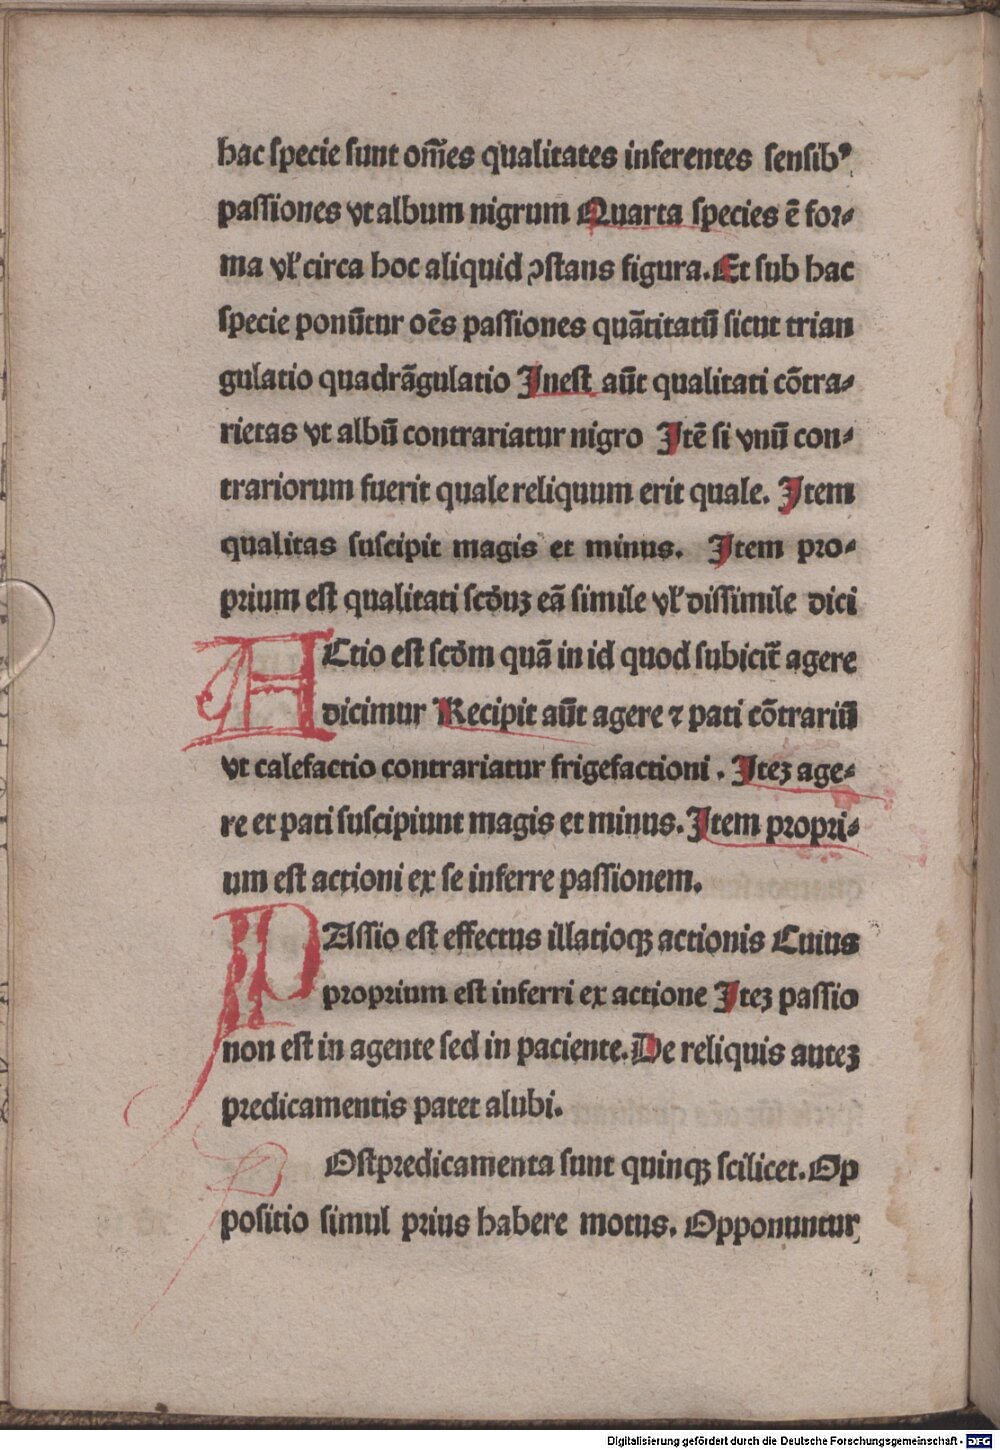 hac specie sunt om̅es qualitates inferentes sensibꝰ
passiones vt album nigrum Quarta species ē for⸗
ma vl̕ circa hoc aliquid ꝯstans figura. Et sub hac
specie ponūtur oēs passiones quātitatū sicut trian
gulatio quadrāgulatio Inest aūt qualitati cōtra⸗
rietas vt albū contrariatur nigro Itē si vnū con⸗
trariorum fuerit quale reliquum erit quale. Item
qualitas suscipit magis et minus. Item pro⸗
prium est qualitati scd̕uꝫ eā simile vl̕ dissimile dici
ACtio est scd̕m quā in id quod subicit̅ agere
dicimur Recipit aūt agere ⁊ pati cōtrariū
vt calefactio contrariatur frigefactioni. Iteꝫ age⸗
re et pati suscipiunt magis et minus. Item propri⸗
um est actioni ex se inferre passionem.
PAssio est effectus illatioqꝫ actionis Cuius
proprium est inferri ex actione Iteꝫ passio
non est in agente sed in paciente. De reliquis auteꝫ
predicamentis patet alubi.
POstpredicamenta sunt quinqꝫ scilicet. Op
positio simul prius habere motus. Opponuntur
Digitalisierung gefördert durch die Deutsche Forschungsgemeinschaft - DFG